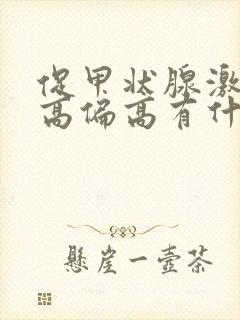 促甲状腺激
高偏高有什
悬崖一壶茶